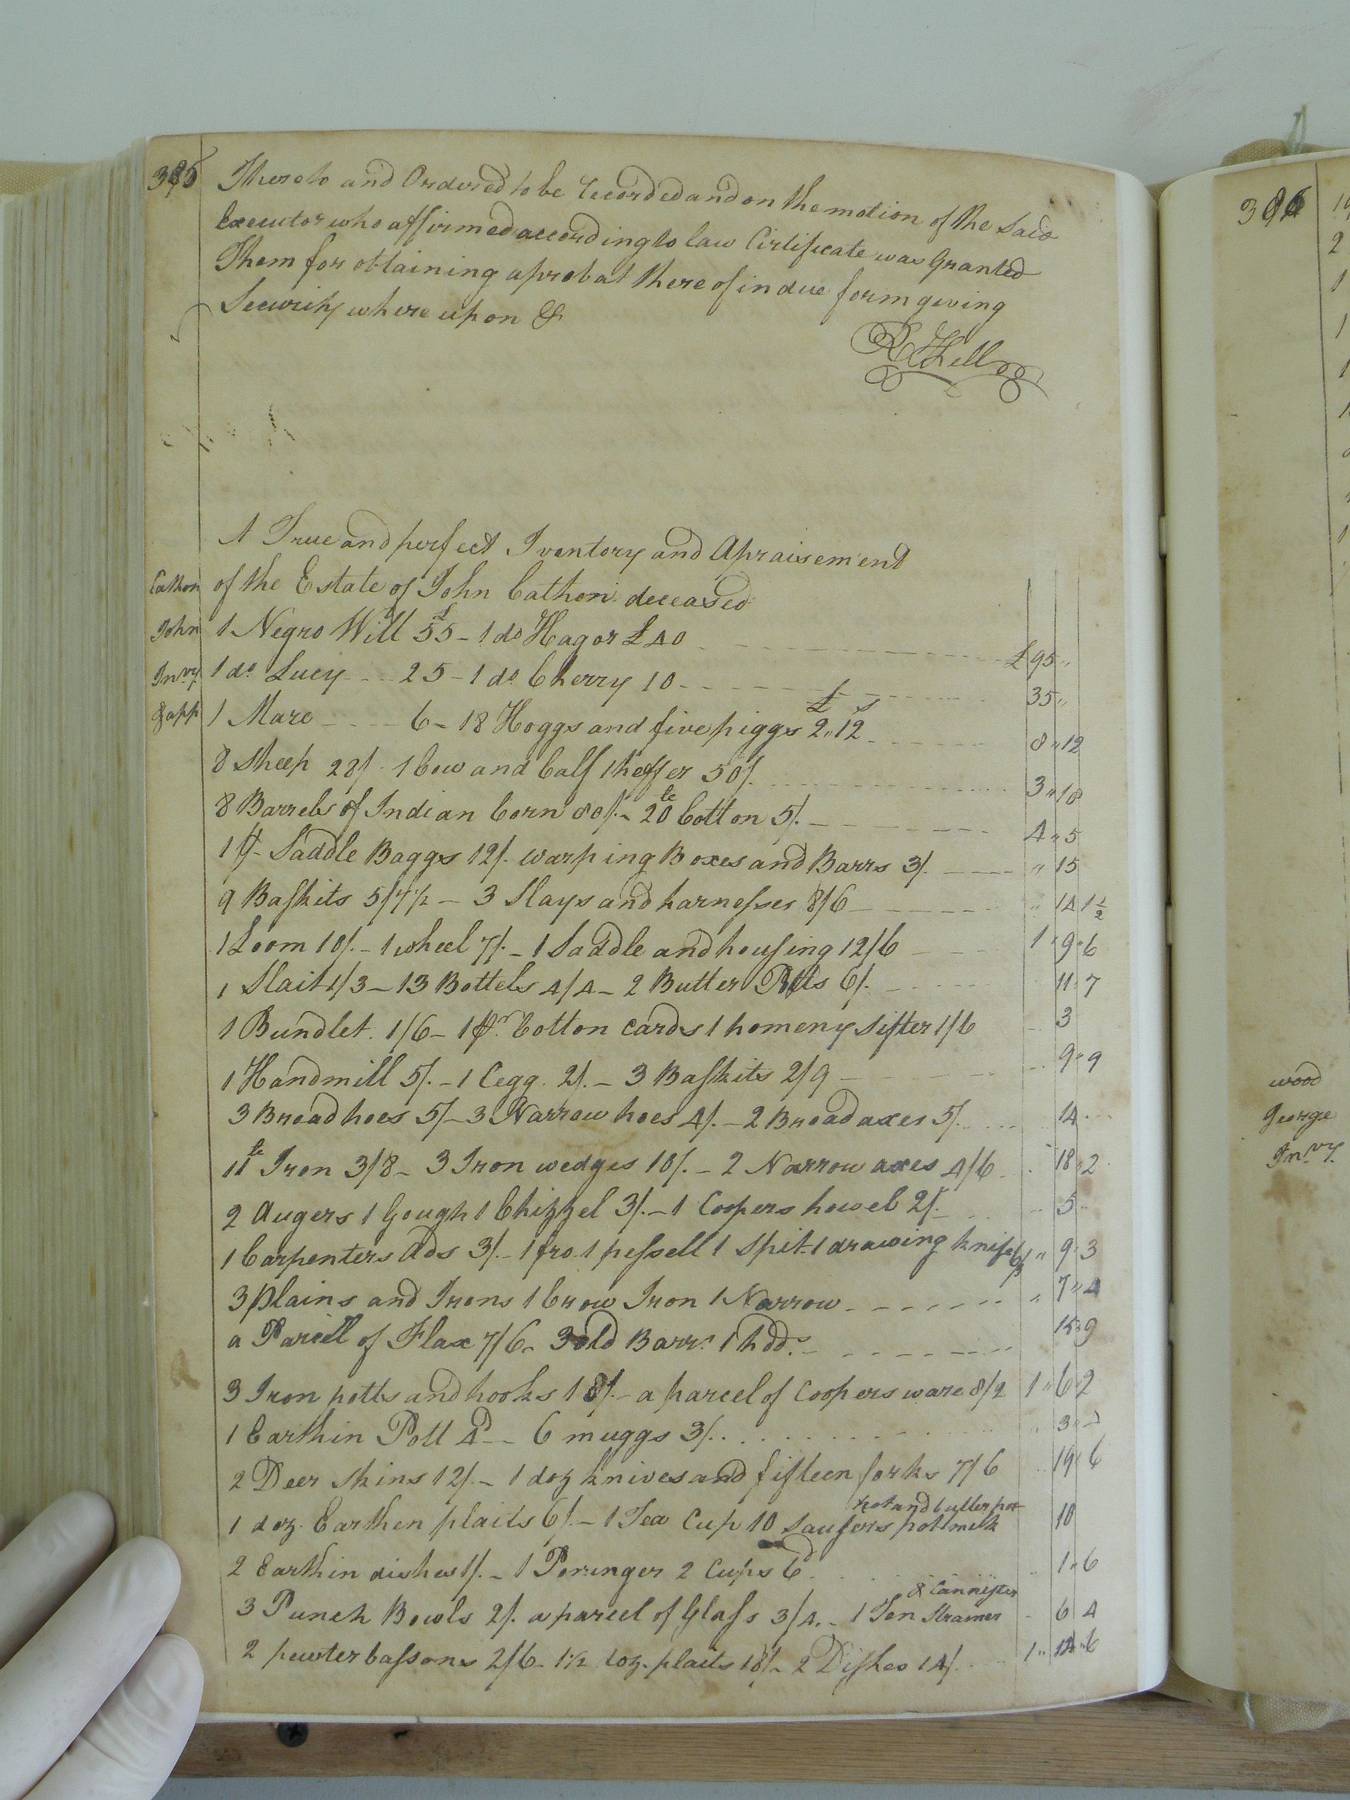 385 Thereto and Ordered to be Recorded and on the motion of the Said
Executor who affirmed according to law Certificate was Granted
Them for obtaining a probat there of in due form giving
Security where upon &
R Kello
A True and perfect Iventory and Apraisement
Cathon of the Estate of John Cathon deceased
John 1 Negro Will £55 - 1 do Hagor £40 £95 "
Invy 1 do Lucy 25 - 1 do Cherry 10 35 "
& app 1 Mare 6 - 18 Hoggs and five piggs £2"12s 8"12
8 Sheep 28/. 1 Cow and Calf 1 heffer 50/. 3"18
8 Barrels of Indian Corn 80/. - 20 lb Cotton 5/. 4"5
1 pr Saddle Baggs 12/. warping Boxes and Barrs 3/. " 15
9 Baskits 5/7½ - 3 Slays and harnesses 8/6 " 14 1½
1 Loom 10/. - 1 wheel 7/. - 1 Saddle and housing 12/6 1"9"6
1 Slait 1/3 - 13 Bottels 4/4 - 2 Butter Potts 6/. 11"7
1 Rundlet. 1/6 - 1 pr Cotton Cards 1 homeny Sifter 1/6 3
1 Handmill 5/. - 1 Cegg 2/. - 3 Baskits 2/9 9"9
3 Broad hoes 5/ - 3 Narrow hoes 4/. - 2 Broad axes 5/. 14
11 lb Iron 3/8 - 3 Iron wedges 10/. - 2 Narrow axes 4/6 18"2
2 Augers 1 Gough 1 Chizzel 3/. - 1 Coopers howel 2/. 5
1 Carpenters Ads 3/. - 1 fro 1 pessell 1 Spit 1 drawing knife 6/3 " 9"3
3 plains and Irons 1 Crow Iron 1 Narrow " 7"4
a Parcell of Flax 7/6 - 3 old Barrs 1 hdd. 15"9
3 Iron potts and hooks 18/. - a parcel of Coopers ware 8/2 1"6"2
1 Earthin Pott 4d - 6 muggs 3/. 3"
2 Deer Skins 12/. - 1 doz knives and fifteen forks 7/6 19"6
1 doz. Earthen plaits 6/. - 1 Tea Cup 10 Sausers pott milk pot and butter pot 10
2 Earthin dishes 1/. - 1 Poringer 2 Cups 6d 1"6
3 Punch Bowls 2/. a parcel of Glass 3/4. - 1 Ten Strainer & Cannister 6 4
2 pewter bassons 2/6 - 1½ doz. plaits 18/. 2 Dishes 14/. 1"14"6
386
2
1
1
1
wood
George
Invy